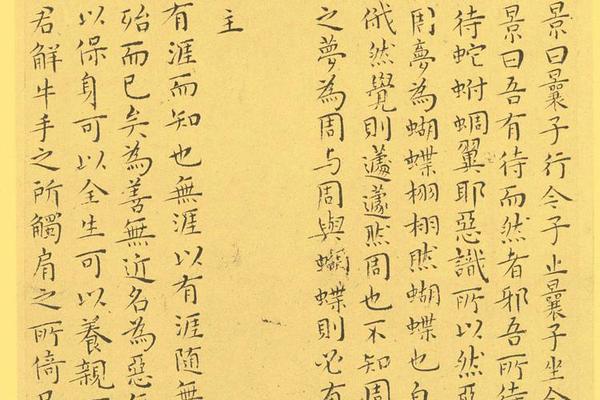 景曰曩子行今子止曩子坐今
景曰吾有待而然者耶吾所待
待蛇蚹蜩翼耶惡識所以然惡
周夢為蝴蝶栩栩然蝴蝶也自
俄然覺則蘧蘧然周也不知周
之夢為周与周與蝴蝶則必有
主
有涯而知也無涯以有涯隨無
殆而已矣為善無近名為惡
以保身可以全生可以養親
君解牛手之所觸肩之所倚